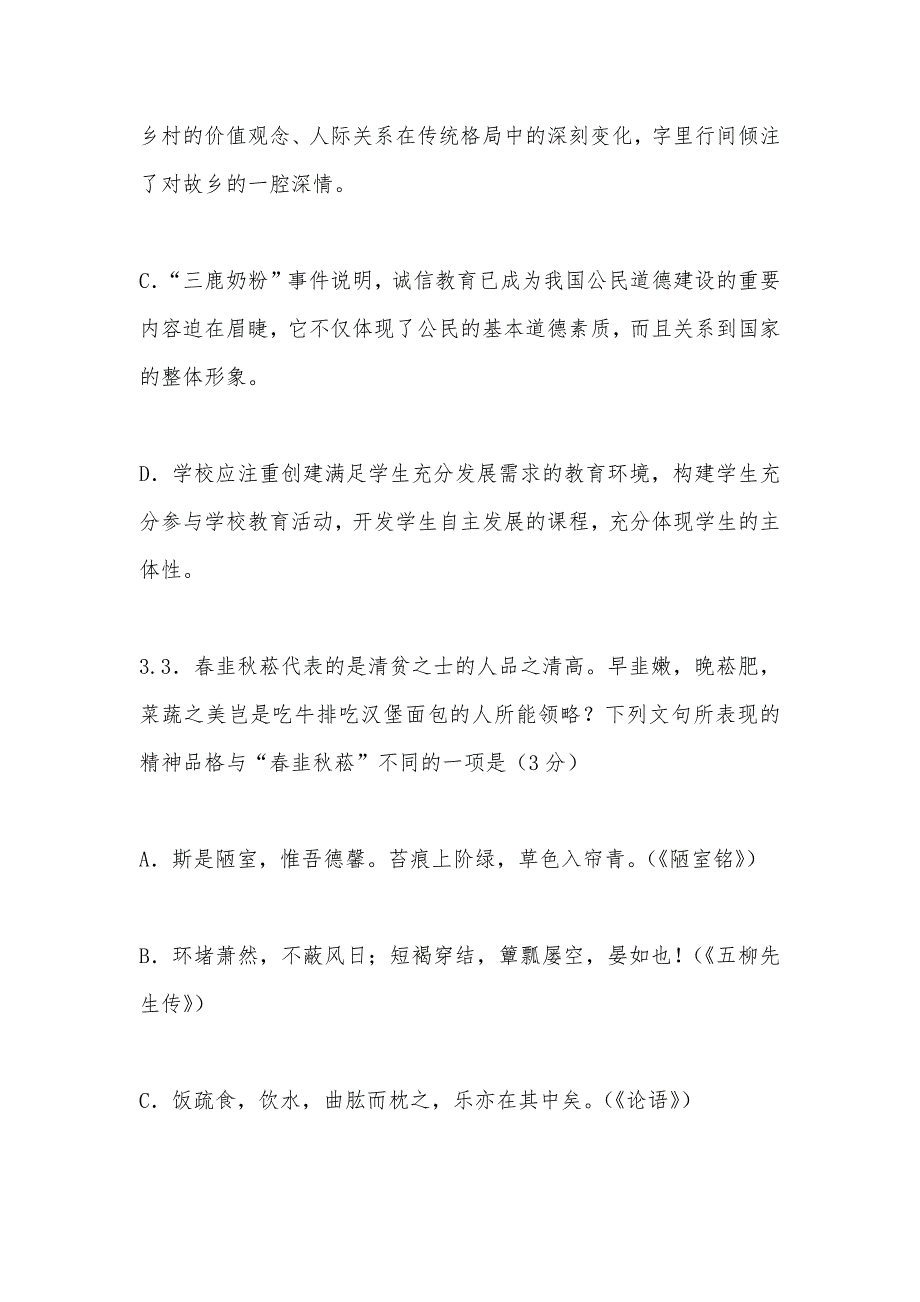 乡村的价值观念、人际关系在传统格局中的深刻变化，字里行间倾注
了对故乡的一腔深情。
C．“三鹿奶粉”事件说明，诚信教育已成为我国公民道德建设的重要
内容迫在眉睫，它不仅体现了公民的基本道德素质，而且关系到国家
的整体形象。
D．学校应注重创建满足学生充分发展需求的教育环境，构建学生充
分参与学校教育活动，开发学生自主发展的课程，充分体现学生的主
体性。
3.3．春韭秋菘代表的是清贫之士的人品之清高。早韭嫩，晚菘肥，
菜蔬之美岂是吃牛排吃汉堡面包的人所能领略？下列文句所表现的
精神品格与“春韭秋菘”不同的一项是（3分）
A．斯是陋室，惟吾德馨。苔痕上阶绿，草色入帘青。（《陋室铭》）
B．环堵萧然，不蔽风日；短褐穿结，箪瓢屡空，晏如也！（《五柳先
生传》）
C．饭疏食，饮水，曲肱而枕之，乐亦在其中矣。（《论语》）